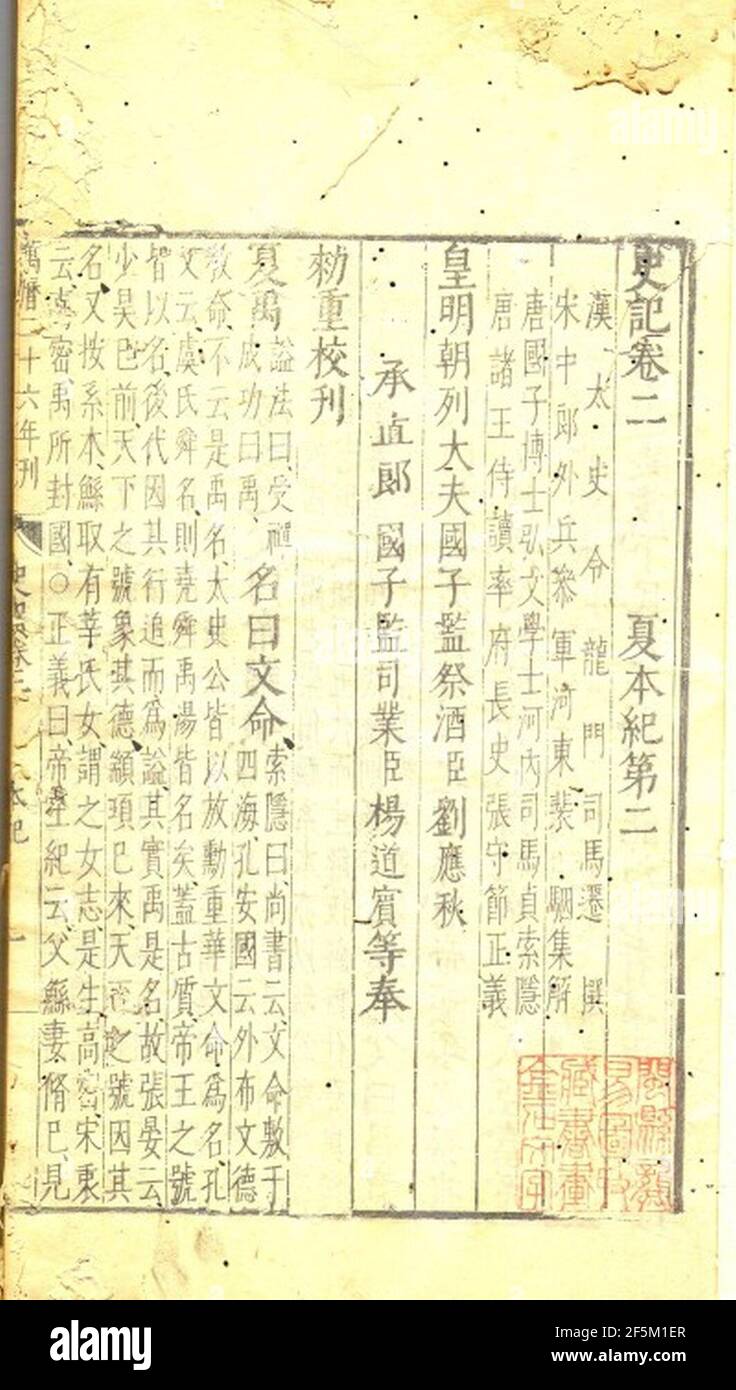 史記卷二 夏本紀第二
漢太史令龍門司馬遷撰
宋中郎外兵參軍河東裴駰集解
唐國子博士弘文學士河內司馬貞索隱
唐諸王侍讀率府長史張守節正義
皇明朝列大夫國子監祭酒臣劉應秋
承直郎國子監司業臣楊道賓等奉
勑重校刊
夏禹
謚法曰受禪
成功曰禹
名曰文命
索隱曰尚書云文命敷于
四海孔安國云外布文德
教命不云是禹名太史公皆以放勳重華文命爲名孔
文云虞氏舜名則堯舜禹湯皆名矣蓋古質帝王之號
皆以名後代因其行追而爲謚其實禹是名故張晏云
少昊已前天下之號象其德顓頊已來天下之號因其
名又按系本鯀取有莘氏女謂之女志是生高密宋衷
云高密禹所封國○正義曰帝王紀云父鯀妻脩巳見
萬曆二十六年刊 史記卷二 本紀 一
alamy
alamy
Image ID: 2F5M1ER
www.alamy.com